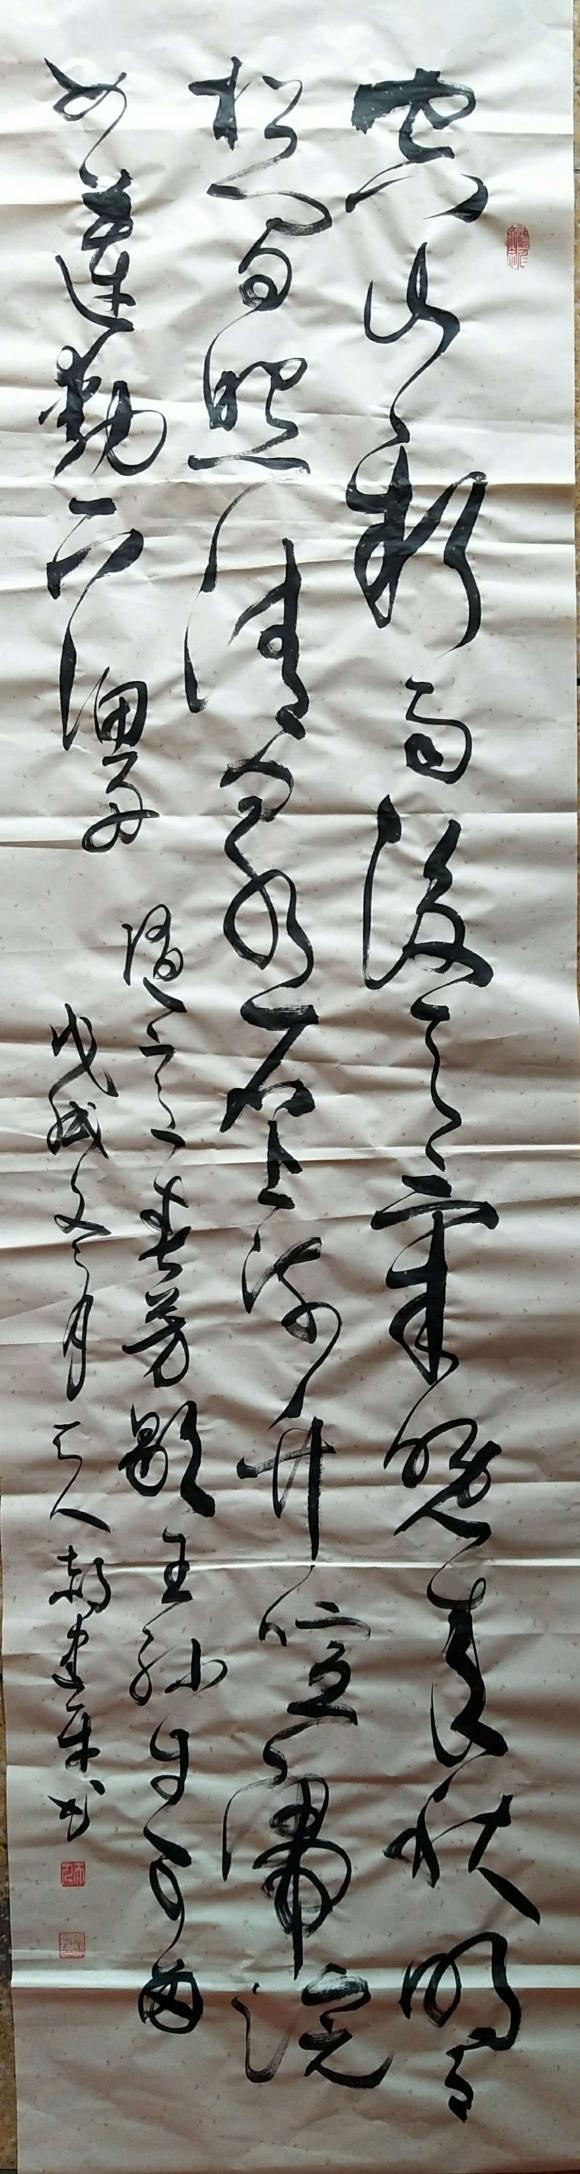 空山新雨後天氣晚来秋明月
松间照清泉石上流竹喧歸浣
女蓮動下漁舟
随意春芳歇王孙自可留
戊戌 月 人 建平书